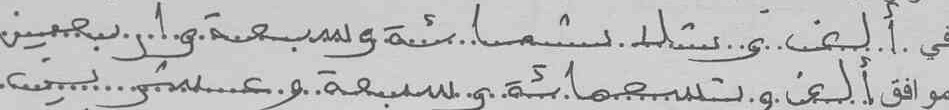 في ألف و ثلاثمائة وسبعة و أربعين
موافق ألف و تسعمائة و سبعة و عشرين